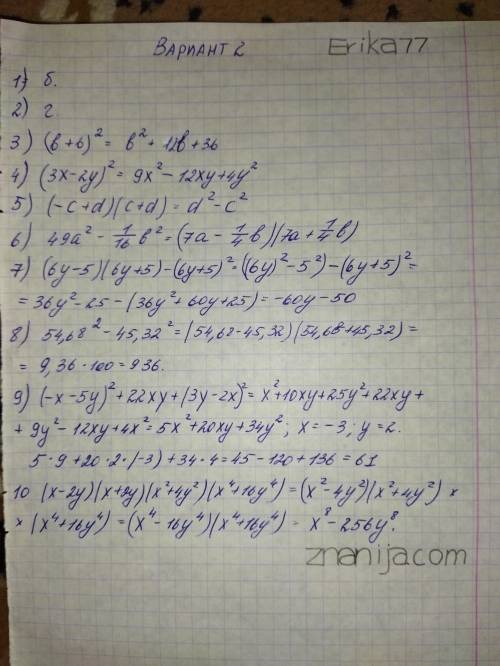 Вариант 2 Erika77
1) б.
2) г.
3) (b+6)² = b² + 12b + 36
4) (3x-2y)² = 9x² - 12xy + 4y²
5) (-c+d)(c+d) = d² - c²
6) 49a² - 1/16 b² = (7a - 1/4 b)(7a + 1/4 b)
7) (6y-5)(6y+5) - (6y+5)² = ((6y)² - 5²) - (6y+5)² =
= 36y² - 25 - (36y² + 60y + 25) = -60y - 50
8) 54,68² - 45,32² = (54,68 - 45,32)(54,68 + 45,32) =
= 9,36 · 100 = 936.
9) (-x-5y)² + 22xy + (3y-2x)² = x² + 10xy + 25y² + 22xy +
+ 9y² - 12xy + 4x² = 5x² + 20xy + 34y²; x = -3; y = 2.
5 · 9 + 20 · 2 · (-3) + 34 · 4 = 45 - 120 + 136 = 61
10 (x-2y)(x+2y)(x²+4y²)(x⁴+16y⁴) = (x²-4y²)(x²+4y²) ×
× (x⁴+16y⁴) = (x⁴-16y⁴)(x⁴+16y⁴) = x⁸ - 256y⁸.
znanijacom